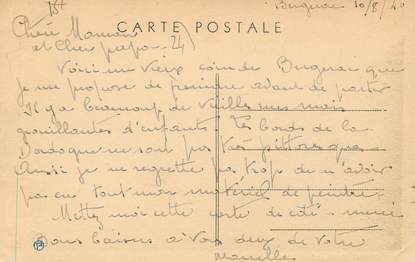 Bergerac 30/8/40
CARTE POSTALE
Chère Maman
et Cher papa.
Voici un vieux coin de Bergerac que
je me propose de peindre avant de partir
Il y a beaucoup de vieilles rues mais
grouillantes d'enfants. Les bords de la
Dordogne ne sont pas très pittoresques.
Aussi je ne regrette pas trop de n'avoir
pas eu tout mon matériel de peintre.
Mettez moi cette carte de côté - merci
Bons baisers à vous deux de votre
Marcelle